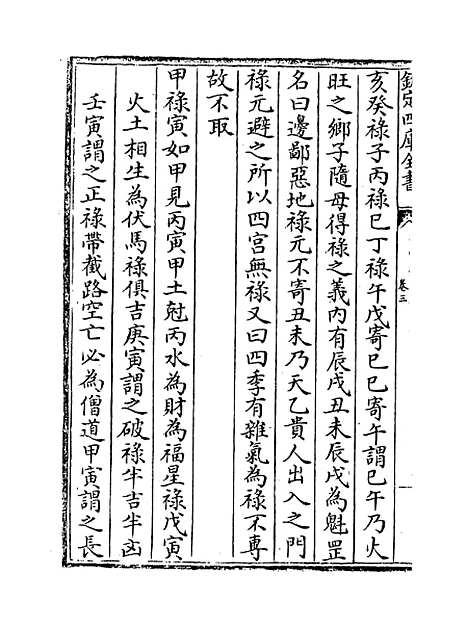 欽定四庫全書
卷三
亥癸祿子丙祿巳丁祿午戊寄巳己寄午謂巳午乃火
旺之鄉子隨母得祿之義內有辰戌丑未辰戌為魁罡
名曰邊鄙惡地祿元不寄丑未乃天乙貴人出入之門
祿元避之所以四宮無祿又曰四季有雜氣為祿不專
故不取
甲祿寅如甲見丙寅甲土尅丙水為財為福星祿戊寅
火土相生為伏馬祿俱吉庚寅謂之破祿半吉半凶
壬寅謂之正祿帶截路空亡必為僧道甲寅謂之長